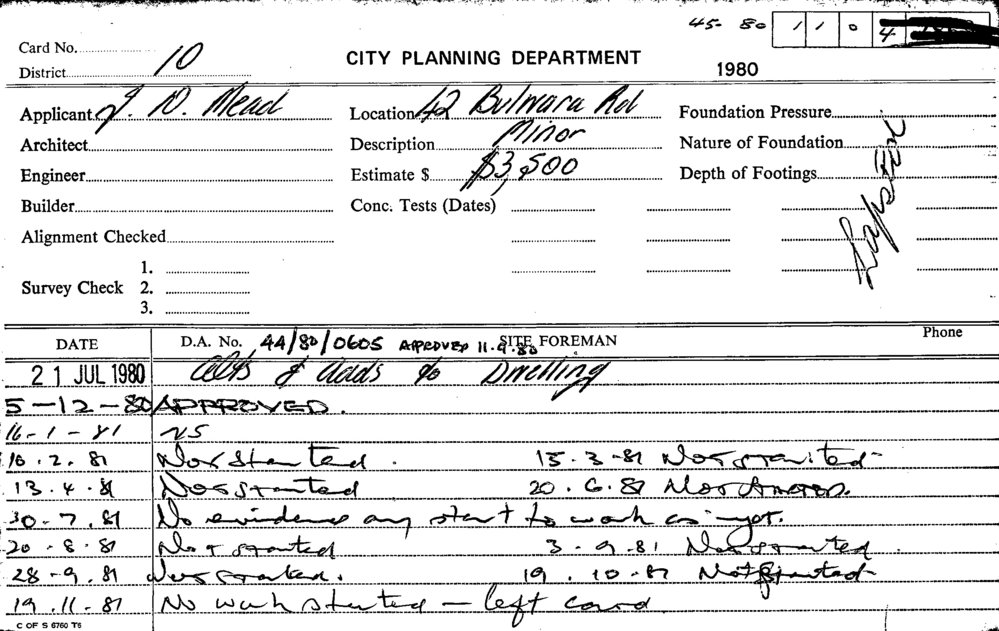 45- 80 1 1 0 4
Card No.
District 10
CITY PLANNING DEPARTMENT
1980
Applicant J. D. Mead
Location 42 Bulwara Rd
Foundation Pressure
Architect
Description Minor
Nature of Foundation
Engineer
Estimate $ $3,500
Depth of Footings
Builder
Conc. Tests (Dates)
Lapsed
Alignment Checked
Survey Check
1.
2.
3.
DATE
D.A. No. 44/80/0605 APPROVED 11.9.80 SITE FOREMAN
Phone
21 JUL 1980 Alts & Adds to Dwelling
5-12-80 APPROVED.
16-1-81 NS
10.2.81 Not Started. 15.3-81 Not started
13.4.81 Not started 20.6.81 Not started.
30-7.81 No evidence any start to work as yet.
20-8-81 Not started 3-9.81 Not started.
28-9.81 Not started. 19.10-81 Not Started
19.11-81 No work started - left card
C OF S 6760 T6